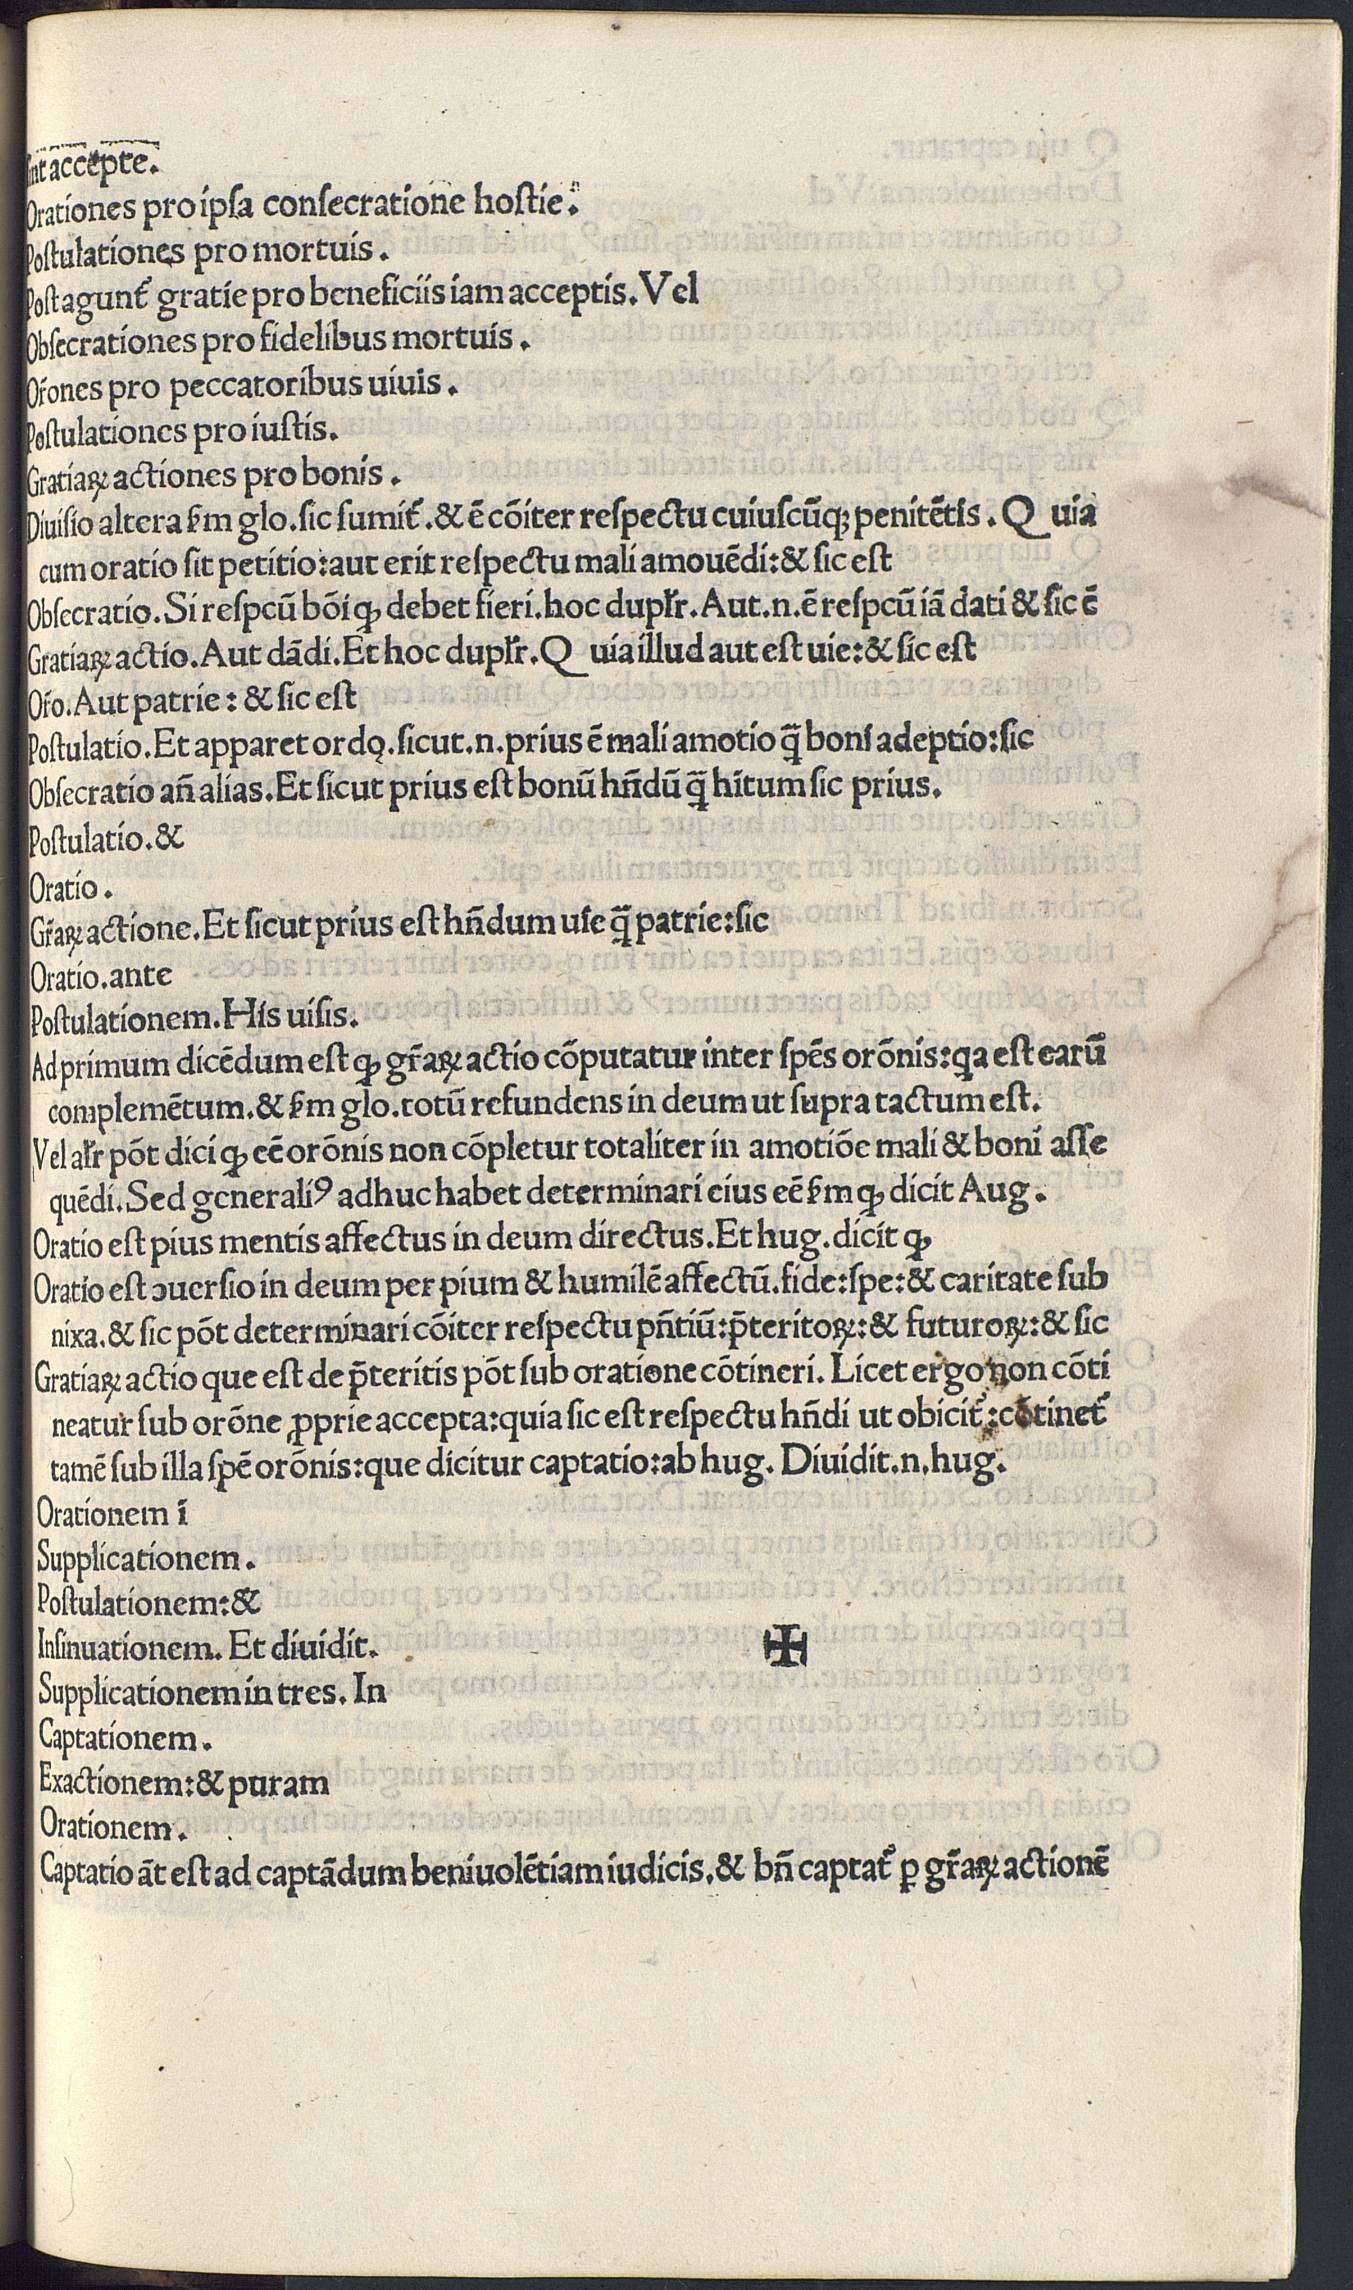 sint accepte.
Orationes pro ipsa consecratione hostie.
Postulationes pro mortuis.
Post agunt᷑ gratie pro beneficiis iam acceptis. Vel
Obsecrationes pro fidelibus mortuis.
Or̃ones pro peccatoribus uiuis.
Postulationes pro iustis.
Gratiaꝝ actiones pro bonis.
Diuisio altera ẜm glo. sic sumit᷑. & ē cōiter respectu cuiuscūqꝫ penitētis. Q uia
cum oratio sit petitio: aut erit respectu mali amouēdi: & sic est
Obsecratio. Si respcū bōi qꝫ debet fieri. hoc dupłr. Aut .n. ē respcū iā dati & sic ē
Gratiaꝝ actio. Aut dādi. Et hoc dupłr. Q uia illud aut est uie: & sic est
Or̃o. Aut patrie: & sic est
Postulatio. Et apparet ordo̧. sicut .n. prius ē mali amotio q̄̃ boni adeptio: sic
Obsecratio añ alias. Et sicut prius est bonū hñdū q̄̃ hitum sic prius.
Postulatio. &
Oratio.
Gr̃aꝝ actione. Et sicut prius est hñdum uie q̄̃ patrie: sic
Oratio. ante
Postulationem. His uisis.
Ad primum dicēdum est qꝫ gr̃aꝝ actio cōputatur inter spēs orōnis: qa est earū
complemētum. & ẜm glo. totū refundens in deum ut supra tactum est.
Vel ałr pōt dici qꝫ eē orōnis non cōpletur totaliter in amotiōe mali & boni asse
quēdi. Sed generaliꝰ adhuc habet determinari eius eē ẜm qꝫ dicit Aug.
Oratio est pius mentis affectus in deum directus. Et hug. dicit qꝫ
Oratio est ꝯuersio in deum per pium & humilē affectū. fide: spe: & caritate sub
nixa. & sic pōt determinari cōiter respectu pñtiū: p̄teritoꝝ: & futuroꝝ: & sic
Gratiaꝝ actio que est de p̄teritis pōt sub oratione cōtineri. Licet ergo non cōti
neatur sub orōne ꝓprie accepta: quia sic est respectu hñdi ut obicit᷑: cōtinet᷑
tamē sub illa spē orōnis: que dicitur captatio: ab hug. Diuidit .n. hug.
Orationem ī
Supplicationem.
Postulationem: &
Insinuationem. Et diuidit.
Supplicationem in tres. In
Captationem.
Exactionem: & puram
Orationem.
Captatio āt est ad captādum beniuolētiam iudicis. & bñ captat᷑ ꝑ gr̃aꝝ actionē